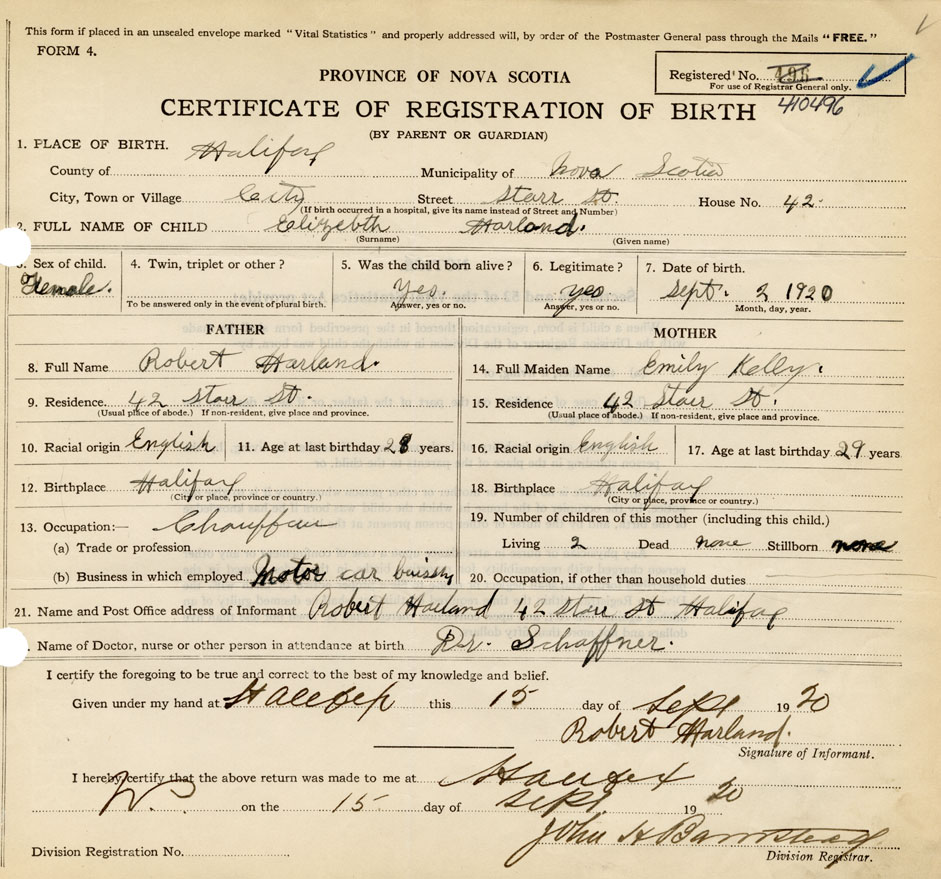 This form if placed in an unsealed envelope marked "Vital Statistics" and properly addressed will, by order of the Postmaster General pass through the Mails "FREE."
FORM 4.
PROVINCE OF NOVA SCOTIA
Registered No. 496
For use of Registrar General only.
CERTIFICATE OF REGISTRATION OF BIRTH 410496
(BY PARENT OR GUARDIAN)
1. PLACE OF BIRTH.
County of Halifax Municipality of Nova Scotia
City, Town or Village City Street Starr St. House No. 42
(If birth occurred in a hospital, give its name instead of Street and Number)
2. FULL NAME OF CHILD Elizebth Harland.
(Surname) (Given name)
3. Sex of child. 4. Twin, triplet or other ? 5. Was the child born alive ? 6. Legitimate ? 7. Date of birth.
Female. Yes. yes Sept. 2 1920
To be answered only in the event of plural birth. Answer, yes or no. Answer, yes or no. Month, day, year.
FATHER
8. Full Name Robert Harland.
9. Residence. 42 Starr St.
(Usual place of abode.) If non-resident, give place and province.
10. Racial origin English 11. Age at last birthday 28 years.
12. Birthplace Halifax
(City or place, province or country.)
13. Occupation:— Chauffeur
(a) Trade or profession
(b) Business in which employed Motor car
MOTHER
14. Full Maiden Name Emily Kelly.
15. Residence 42 Starr St.
(Usual place of abode.) If non-resident, give place and province.
16. Racial origin English 17. Age at last birthday 29 years
18. Birthplace Halifax
(City or place, province or country.)
19. Number of children of this mother (including this child.)
Living 2 Dead none Stillborn none
20. Occupation, if other than household duties
21. Name and Post Office address of Informant Robert Harland 42 Starr St Halifax
. Name of Doctor, nurse or other person in attendance at birth Dr. Schaffner.
I certify the foregoing to be true and correct to the best of my knowledge and belief.
Given under my hand at Halifax this 15 day of Sept 1920
Robert Harland.
Signature of Informant.
I hereby certify that the above return was made to me at Halifax
on the 15 day of Sept 1920
John H Barnstead
Division Registrar.
Division Registration No.